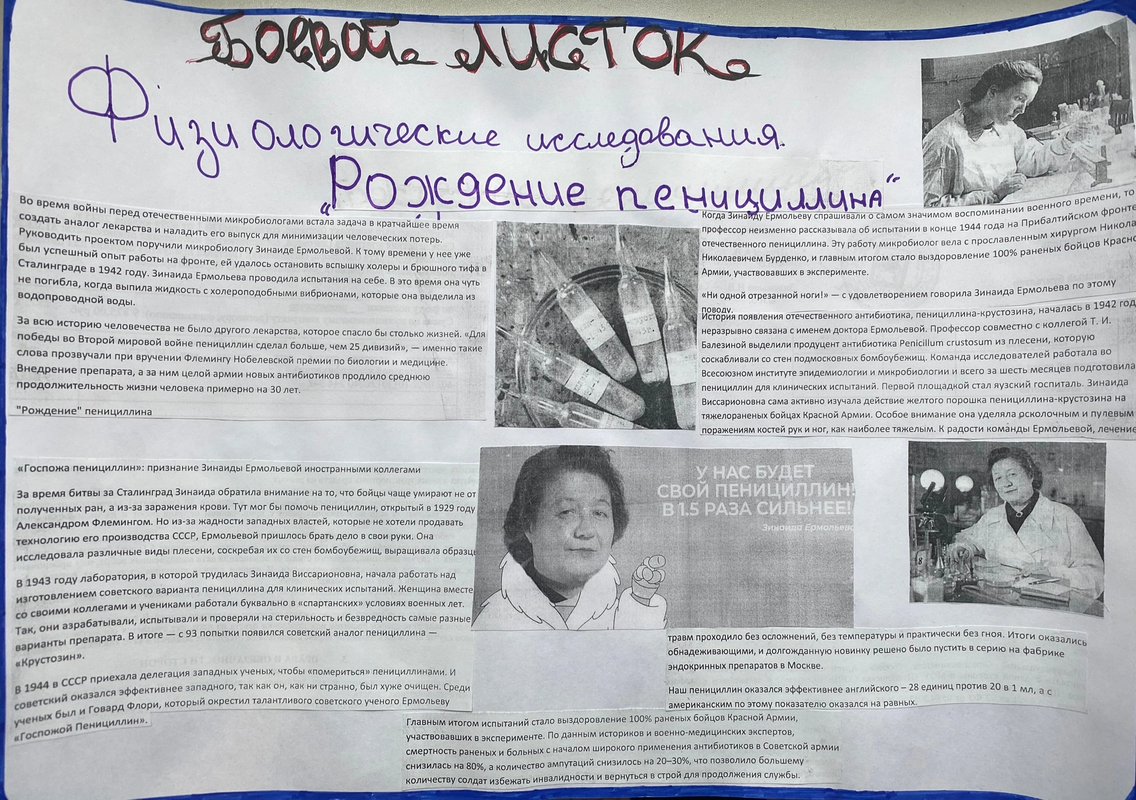 БОЕВОЙ ЛИСТОК
Физиологические исследования.
„Рождение пенициллина“
Во время войны перед отечественными микробиологами встала задача в кратчайшее время
создать аналог лекарства и наладить его выпуск для минимизации человеческих потерь.
Руководить проектом поручили микробиологу Зинаиде Ермольевой. К тому времени у нее уже
был успешный опыт работы на фронте, ей удалось остановить вспышку холеры и брюшного тифа в
Сталинграде в 1942 году. Зинаида Ермольева проводила испытания на себе. В это время она чуть
не погибла, когда выпила жидкость с холероподобными вибрионами, которые она выделила из
водопроводной воды.
За всю историю человечества не было другого лекарства, которое спасло бы столько жизней. «Для
победы во Второй мировой войне пенициллин сделал больше, чем 25 дивизий», — именно такие
слова прозвучали при вручении Флемингу Нобелевской премии по биологии и медицине.
Внедрение препарата, а за ним целой армии новых антибиотиков продлило среднюю
продолжительность жизни человека примерно на 30 лет.
"Рождение" пенициллина
Когда Зинаиду Ермольеву спрашивали о самом значимом воспоминании военного времени, то
профессор неизменно рассказывала об испытании в конце 1944 года на Прибалтийском фронте
отечественного пенициллина. Эту работу микробиолог вела с прославленным хирургом Никола
Николаевичем Бурденко, и главным итогом стало выздоровление 100% раненых бойцов Красно
Армии, участвовавших в эксперименте.
«Ни одной отрезанной ноги!» — с удовлетворением говорила Зинаида Ермольева по этому
поводу.
История появления отечественного антибиотика, пенициллина-крустозина, началась в 1942 год
неразрывно связана с именем доктора Ермольевой. Профессор совместно с коллегой Т. И.
Балезиной выделили продуцент антибиотика Penicillum crustosum из плесени, которую
соскабливали со стен подмосковных бомбоубежищ. Команда исследователей работала во
Всесоюзном институте эпидемиологии и микробиологии и всего за шесть месяцев подготовила
пенициллин для клинических испытаний. Первой площадкой стал яузский госпиталь. Зинаида
Виссарионовна сама активно изучала действие желтого порошка пенициллина-крустозина на
тяжелораненых бойцах Красной Армии. Особое внимание она уделяла осколочным и пулевым
поражениям костей рук и ног, как наиболее тяжелым. К радости команды Ермольевой, лечение
«Госпожа пенициллин»: признание Зинаиды Ермольевой иностранными коллегами
За время битвы за Сталинград Зинаида обратила внимание на то, что бойцы чаще умирают не от
полученных ран, а из-за заражения крови. Тут мог бы помочь пенициллин, открытый в 1929 году
Александром Флемингом. Но из-за жадности западных властей, которые не хотели продавать
технологию его производства СССР, Ермольевой пришлось брать дело в свои руки. Она
исследовала различные виды плесени, соскребая их со стен бомбоубежищ, выращивала образцы
В 1943 году лаборатория, в которой трудилась Зинаида Виссарионовна, начала работать над
изготовлением советского варианта пенициллина для клинических испытаний. Женщина вместе
со своими коллегами и учениками работали буквально в «спартанских» условиях военных лет.
Так, они азрабатывали, испытывали и проверяли на стерильность и безвредность самые разные
варианты препарата. В итоге — с 93 попытки появился советский аналог пенициллина —
«Крустозин».
В 1944 в СССР приехала делегация западных ученых, чтобы «помериться» пенициллинами. И
советский оказался эффективнее западного, так как он, как ни странно, был хуже очищен. Среди
ученых был и Говард Флори, который окрестил талантливого советского ученого Ермольеву
«Госпожой Пенициллин».
У НАС БУДЕТ
СВОЙ ПЕНИЦИЛЛИН!
В 1.5 РАЗА СИЛЬНЕЕ!
Зинаида Ермольева
травм проходило без осложнений, без температуры и практически без гноя. Итоги оказались
обнадеживающими, и долгожданную новинку решено было пустить в серию на фабрике
эндокринных препаратов в Москве.
Наш пенициллин оказался эффективнее английского – 28 единиц против 20 в 1 мл, а с
американским по этому показателю оказался на равных.
Главным итогом испытаний стало выздоровление 100% раненых бойцов Красной Армии,
участвовавших в эксперименте. По данным историков и военно-медицинских экспертов,
смертность раненых и больных с началом широкого применения антибиотиков в Советской армии
снизилась на 80%, а количество ампутаций снизилось на 20–30%, что позволило большему
количеству солдат избежать инвалидности и вернуться в строй для продолжения службы.